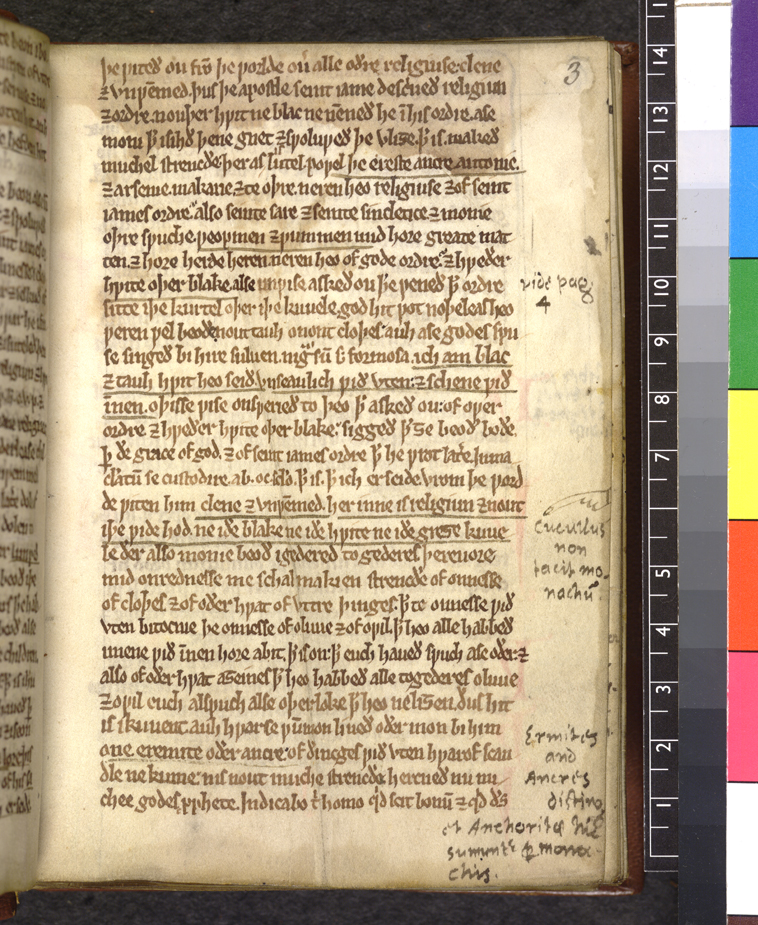 þe ƿiteð ou from þe ƿorlde ouer alle oðre religiuse. clene
3
⁊ vnƿemmed. þus þe apostle seint iame descriueð religiun
⁊ ordre. nouþer hƿit ne blac ne nemneð he in his ordre. ase
moni þet isihð þene gnet ⁊ sƿoluƿeð þe vliʒe. þet is. makeð
muchel strencðe þer as lutel. poƿel þe ereste ancre. antonie.
⁊ arsenie. makarie. ⁊ te oþre. neren heo religiuse ⁊ of seint
iames ordre. also seinte sare ⁊ seinte sincletice. ⁊ monie
oþre spuche. ƿeopmen ⁊ ƿummen mid hore greate mat
ten. ⁊ hore herde heren. neren heo of gode ordre. ⁊ hƿeðer
hƿite oþer blake. alse unƿise askeð ou þe ƿeneð þet ordre
vide pag
4
sitte iþe kurtel oþer iþe kuuele. god hit ƿot noþeleas heo
ƿeren ƿel beoðe. nout tauh onont cloþes. auh ase godes spu
se singeð bi hire suluen. nigra sum sed formosa. ich am blac
⁊ tauh hƿit heo seið. vnseaulich ƿið vten. ⁊ schene ƿið
innen. oþisse ƿise onsƿerieð to þeo þet askeð ou. of oƿer
ordre ⁊ hƿeðer hƿite oþer blake. siggeð þet ʒe beoð boðe.
þurh ðe grace of god. ⁊ of seint iames ordre þet he ƿrot latere. Inma
culatum se custodire. ab. hoc seculo. þet is. þet ich er seide vrom þe ƿord
de ƿiten him clene ⁊ vnƿemmed. her inne is religiun ⁊ nout
iþe ƿide hod. ne iðe blake ne iðe hƿite ne iðe greie kuue
Cucullus
non
facit mo
nachum.
le ðer also monie beoð igedered togederes þereuore
mid onrednesse me schal makien strencðe of onnesse
of cloþes. ⁊ of oðer hƿat of vttre þinges. þet te onnesse ƿið
vten bitocnie þe onnesse of o luue ⁊ of o ƿil. þet heo alle habbeð
imene ƿið innen hore abit. þet is on. þet euch haueð sƿuch ase oðer. ⁊
also of oðer hƿat aʒeines þet heo habbeð alle togederes o luue
⁊ o ƿil euch alsƿuch alse oþer loke þet heo ne liʒen. ðus hit
is ikuuent. auh hƿarse ƿummon liueð oðer mon bi him
one. eremite oðer ancre. of ðinges ƿið vten hƿarof scan
dle ne kume. nis nout muche strencðe. hercneð nu mi
chee godes prophete. Indicabo tibi homo quid sit bonum ⁊ quid deus
Ermites
and
Ancres
disting
et Anchoritæ hic
sumuntur pro mona-
chis.
14
13
12
11
10
9
8
7
5
4
3
2
1